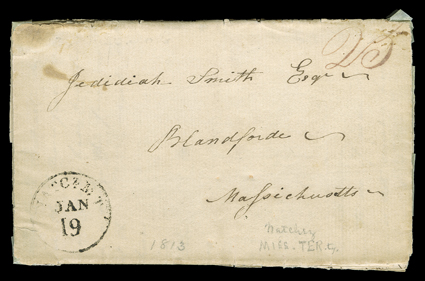 25
Jedidiah Smith Esqr
Blandforde
Massichusetts
JAN
19
1813
Natchez
MISS. TER.